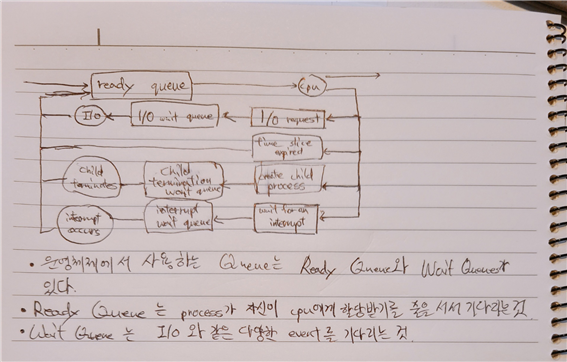 ready queue
cpu
I/O
I/O wait queue
I/O request
time slice
expired
child
terminates
child
termination
wait queue
create child
process
interrupt
occurs
interrupt
wait queue
wait for an
interrupt
• 운영체제에서 사용하는 Queue는 Ready Queue와 Wait Queue가
있다.
• Ready Queue 는 process가 자신이 cpu에게 할당받기를 줄을 서서 기다리는 것
• Wait Queue 는 I/O 와 같은 다양한 event를 기다리는 것